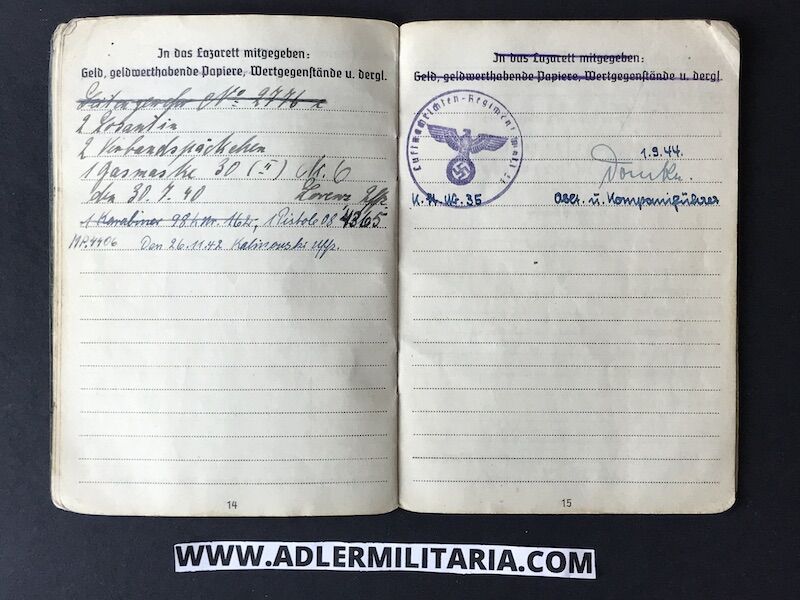 In das Lazarett mitgegeben:
Geld, geldwerthabende Papiere, Wertgegenstände u. dergl.
Seitengewehr No 2776
2 Losantin
2 Verbandspäckchen
1 Gasmaske 30 (II) M. 6
den 30.7.40 Lorenz Uffz
1 Karabiner 98k Nr. 162, 1 Pistole 08 4365
MP.4406 Den 26.11.42 Kalinowski Uffz.
14
In das Lazarett mitgegeben:
Geld, geldwerthabende Papiere, Wertgegenstände u. dergl.
Luftnachrichten-Regiment
1.9.44.
u. Kompanieführer
15
WWW.ADLERMILITARIA.COM